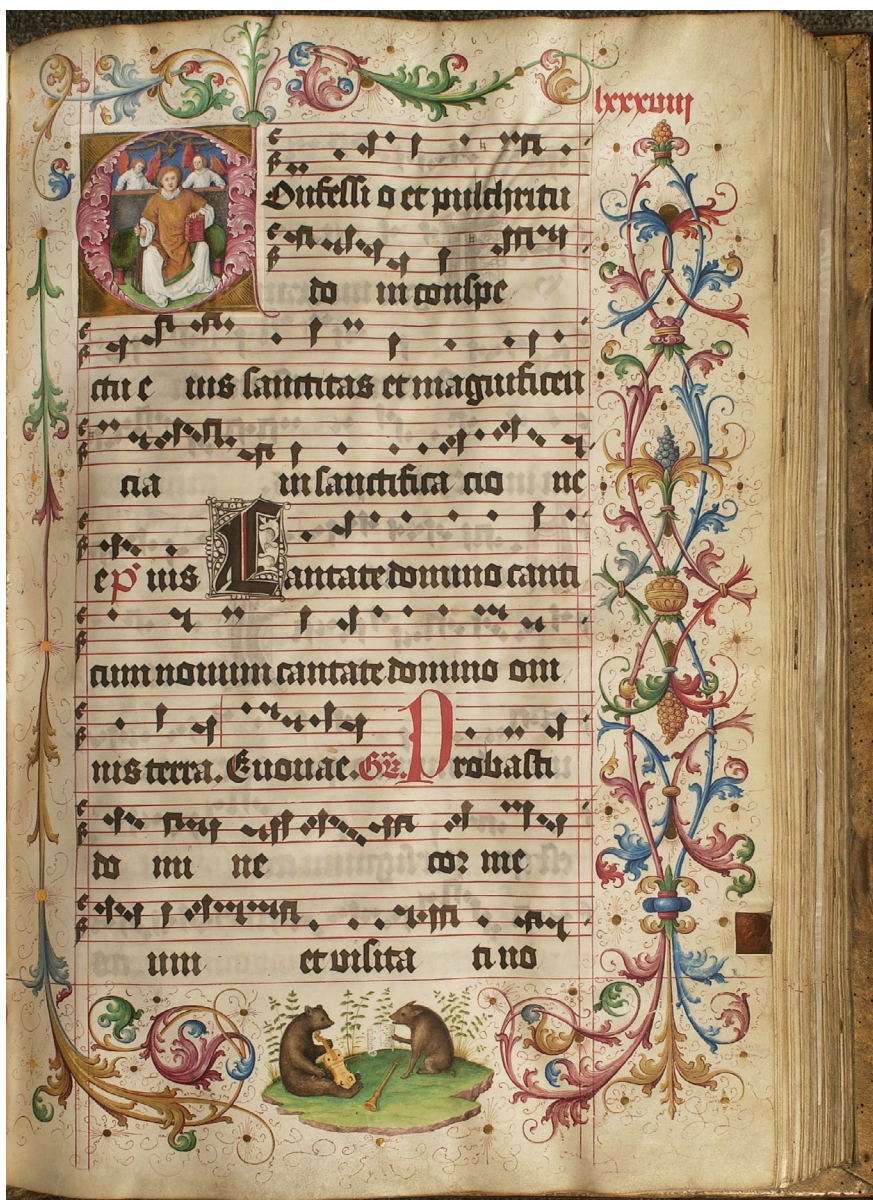 lxxxviiij
Confessi o et pulchritu
do in conspe
ctu e ius sanctitas et magnificen
cia in sanctifica cio ne
e p̄s ius Cantate domino canti
cum nouum cantate domino om
nis terra. Euouae. Gr̄. Probasti
do mi ne cor me
um et visita ti no